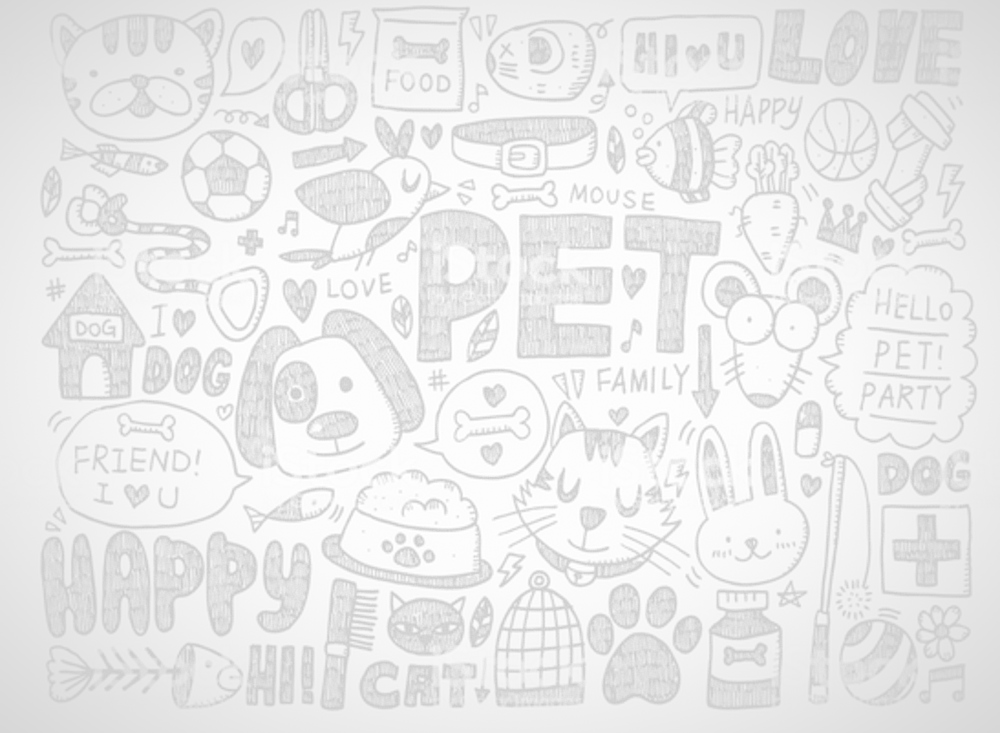 FOOD
HI♥U
LOVE
HAPPY
MOUSE
PET
LOVE
DOG
I♥
DOG
HELLO
PET!
PARTY
FAMILY
FRIEND!
I♥U
DOG
HAPPY
HI!
CAT!